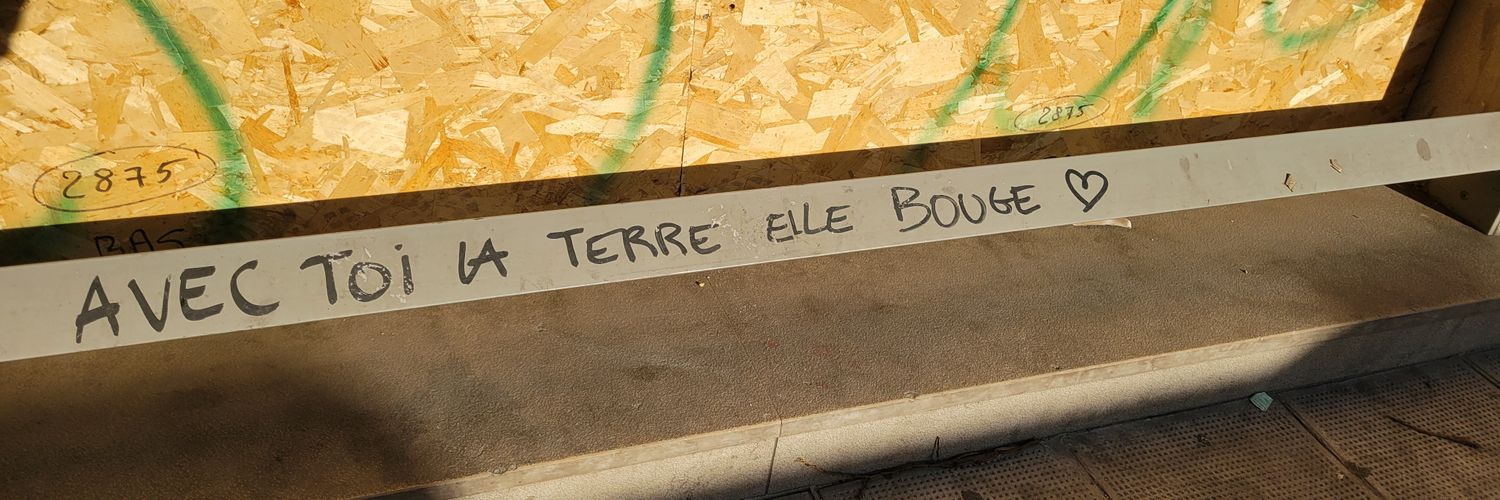 2875
2875
BAS
AVEC TOi LA TERRE ELLE BOUGE ♡